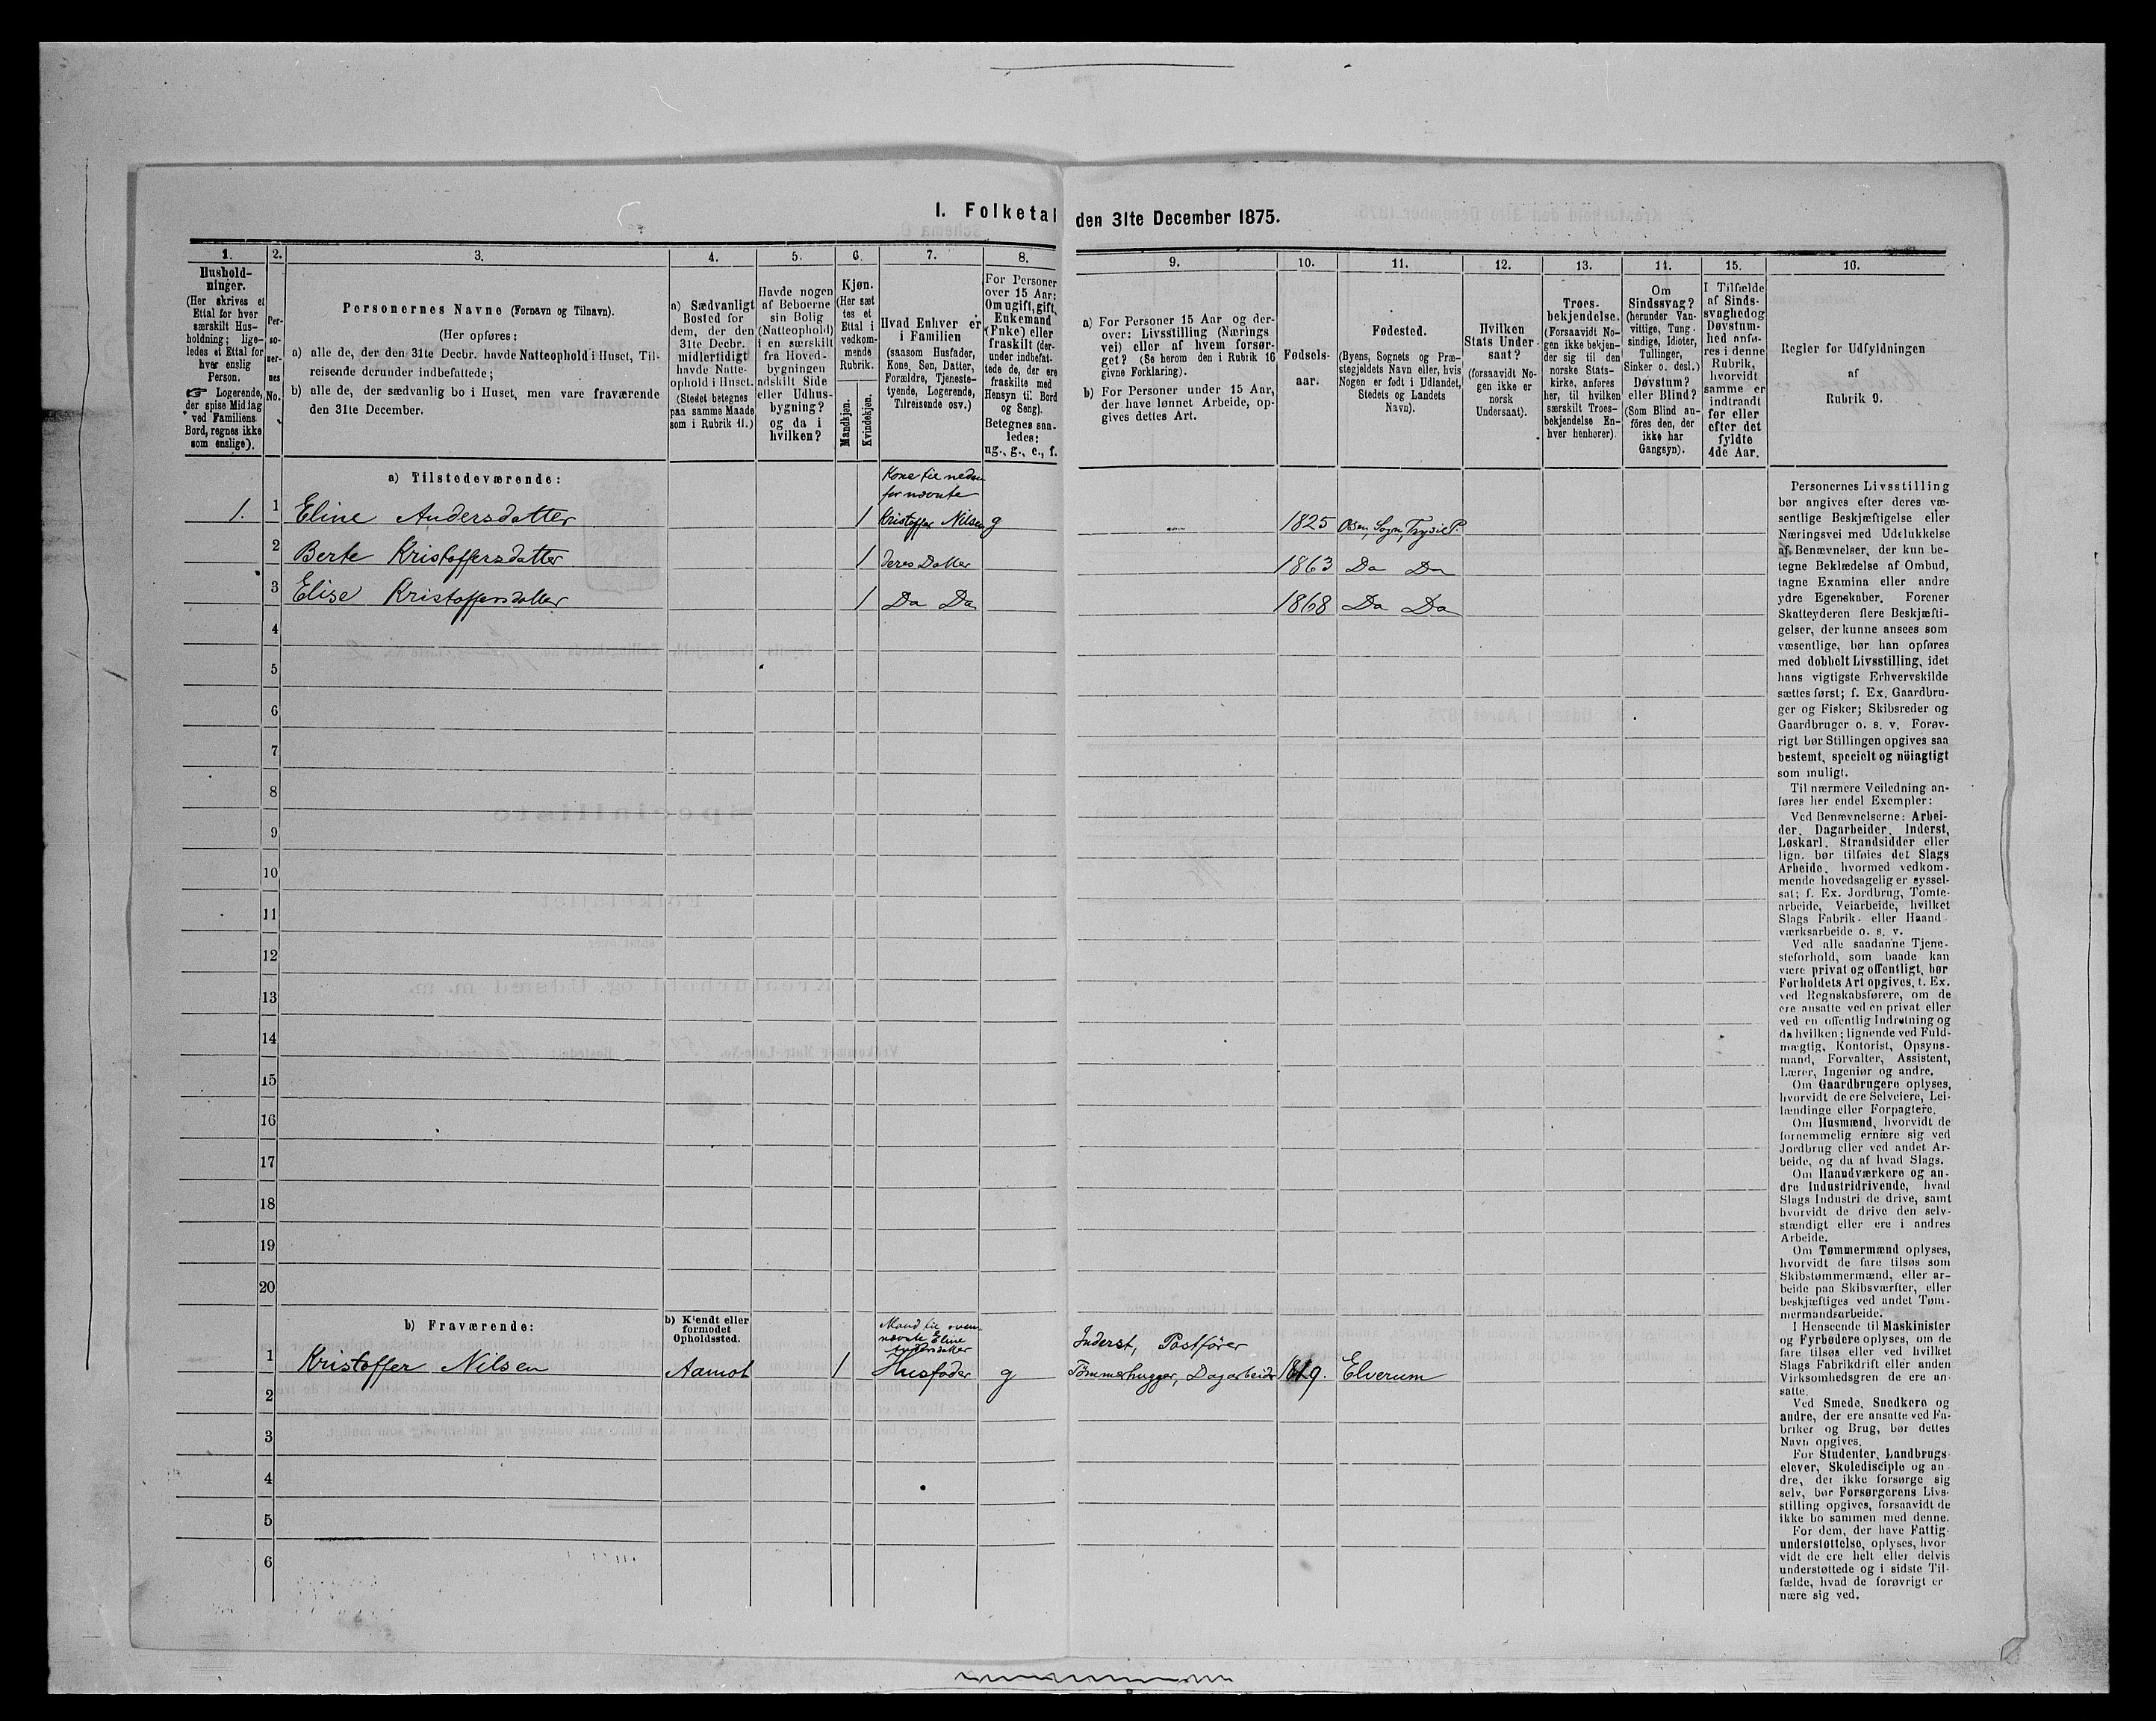 I. Folketal den 31te December 1875.
1.
Hushold-
ninger.
(Her skrives et
Ettal for hver
særskilt Hus-
holdning; lige-
ledes et Ettal for
hver enslig
Person.
☞ Logerende,
der spise Middag
ved Familiens
Bord, regnes ikke
som enslige).
2.
Per-
so-
ner-
nes
No.
3.
Personernes Navne (Fornavn og Tilnavn).
(Her opføres:
a) alle de, der den 31te Decbr. havde Natteophold i Huset, Til-
reisende derunder indbefattede;
b) alle de, der sædvanlig bo i Huset, men vare fraværende
den 31te December.
4.
a) Sædvanligt
Bosted for
dem, der den
31te Decbr.
midlertidigt
havde Natte-
ophold i Huset.
(Stedet betegnes
paa samme Maade
som i Rubrik 11.)
5.
Havde nogen
af Beboerne
sin Bolig
(Natteophold)
i en særskilt
fra Hoved-
bygningen
adskilt Side
eller Udhus-
bygning?
og da i
hvilken?
6.
Kjøn.
(Her sæt
tes et
Ettal i
vedkom-
mende
Rubrik.
Mandkjøn.
Kvindekjøn.
7.
Hvad Enhver er
i Familien
(saasom Husfader,
Kone, Søn, Datter,
Forældre, Tjeneste-
tyende, Logerende,
Tilreisende osv.)
8.
For Personer
over 15 Aar:
Om ugift, gift,
Enkemand
(Enke) eller
fraskilt (der-
under indbefat-
tede de, der ere
fraskilte med
Hensyn til Bord
og Seng).
Betegnes saa-
ledes:
ug., g., e., f.
9.
a) For Personer 15 Aar og der-
over: Livsstilling (Nærings
vei) eller af hvem forsør-
get? (Se herom den i Rubrik 16
givne Forklaring).
b) For Personer under 15 Aar,
der have lønnet Arbeide, op-
gives dettes Art.
10.
Fødsels-
aar.
11.
Fødested.
(Byens, Sognets og Præ-
stegjeldets Navn eller, hvis
Nogen er født i Udlandet,
Stedets og Landets
Navn).
12.
Hvilken
Stats Under-
saat?
(forsaavidt No-
gen ikke er
norsk
Undersaat).
13.
Troes-
bekjendelse.
(Forsaavidt No-
gen ikke bekjen-
der sig til den
norske Stats-
kirke, anføres
her, til hvilken
særskilt Troes-
bekjendelse En-
hver henhører).
14.
Om
Sindssvag?
(herunder Van-
vittige, Tung-
sindige, Idioter,
Tullinger,
Sinker o. desl.)
Døvstum?
eller Blind?
(Som Blind an-
føres den, der
ikke har
Gangsyn).
15.
I Tilfælde
af Sinds-
svaghed og
Døvstum-
hed anfø-
res i denne
Rubrik,
hvorvidt
samme er
indtraadt
før eller
efter det
fyldte
4de Aar.
16.
Regler for Udfyldningen
af
Rubrik 9.
a) Tilstedeværende:
Kone til neden
for nævnte
1. 1 Eline Andersdatter 1 Kristoffer Nilsen g 1825 Osen, Sogn, Trysil P.
2 Berte Kristoffersdatter 1 deres Datter 1863 Do Do
3 Elise Kristoffersdatter 1 Do Do 1868 Do Do
4
5
6
7
8
9
10
11
12
13
14
15
16
17
18
19
20
b) Fraværende:
b) Kjendt eller
formodet
Opholdssted.
Mand til oven
nævnte Eline
Andersdatter
Inderst, Postfører
1 Kristoffer Nilsen Aamot 1 Husfader g Tömmerhugger, Dagarbeider 1819. Elverum
2
3
4
5
6
Personernes Livsstilling
bør angives efter deres væ-
sentlige Beskjæftigelse eller
Næringsvei med Udelukkelse
af Benævnelser, der kun be-
tegne Beklædelse af Ombud,
tagne Examina eller andre
ydre Egenskaber. Forener
Skatteyderen flere Beskjæfti-
gelser, der kunne ansees som
væsentlige, bør han opføres
med dobbelt Livsstilling, idet
hans vigtigste Erhvervskilde
sættes først; f. Ex. Gaardbru-
ger og Fisker; Skibsreder og
Gaardbruger o. s. v. Forøv-
rigt bør Stillingen opgives saa
bestemt, specielt og nöiagtigt
som muligt.
Til nærmere Veiledning an-
føres her endel Exempler:
Ved Benævnelserne: Arbei-
der, Dagarbeider, Inderst,
Løskarl, Strandsidder eller
lign. bør tilføies det Slags
Arbeide, hvormed vedkom-
mende hovedsagelig er syssel-
sat; f. Ex. Jordbrug, Tomte-
arbeide, Veiarbeide, hvilket
Slags Fabrik- eller Haand-
værksarbeide o. s. v.
Ved alle saadanne Tjene-
steforhold, som baade kan
være privat og offentligt, bør
Forholdets Art opgives, f. Ex.
ved Regnskabsførere, om de
ere ansatte ved en privat eller
ved en offentlig Indretning og
da hvilken; lignende ved Fuld-
mægtig, Kontorist, Opsyns-
mand, Forvalter, Assistent,
Lærer, Ingeniør og andre.
Om Gaardbrugere oplyses,
hvorvidt de ere Selveiere, Lei-
lændinge eller Forpagtere.
Om Husmænd, hvorvidt de
fornemmelig ernære sig ved
Jordbrug eller ved andet Ar-
beide, og da af hvad Slags.
Om Haandværkere og an-
dre Industridrivende, hvad
Slags Industri de drive, samt
hvorvidt de drive den selv-
stændigt eller ere i andres
Arbeide.
Om Tømmermænd oplyses,
hvorvidt de fare tilsøs som
Skibstømmermænd, eller ar-
beide paa Skibsværfter, eller
beskjæftiges ved andet Tøm-
mermandsarbeide.
I Henseende til Maskinister
og Fyrbødere oplyses, om de
fare tilsøs eller ved hvilket
Slags Fabrikdrift eller anden
Virksomhedsgren de ere an-
satte.
Ved Smede, Snedkere og
andre, der ere ansatte ved Fa-
briker og Brug, bør dettes
Navn opgives.
For Studenter, Landbrugs-
elever, Skoledisciple og an-
dre, der ikke forsørge sig
selv, bør Forsørgerens Livs-
stilling opgives, forsaavidt de
ikke bo sammen med denne.
For dem, der have Fattig-
understøttelse, oplyses, hvor-
vidt de ere helt eller delvis
understøttede og i sidste Til-
fælde, hvad de forøvrigt er-
nære sig ved.